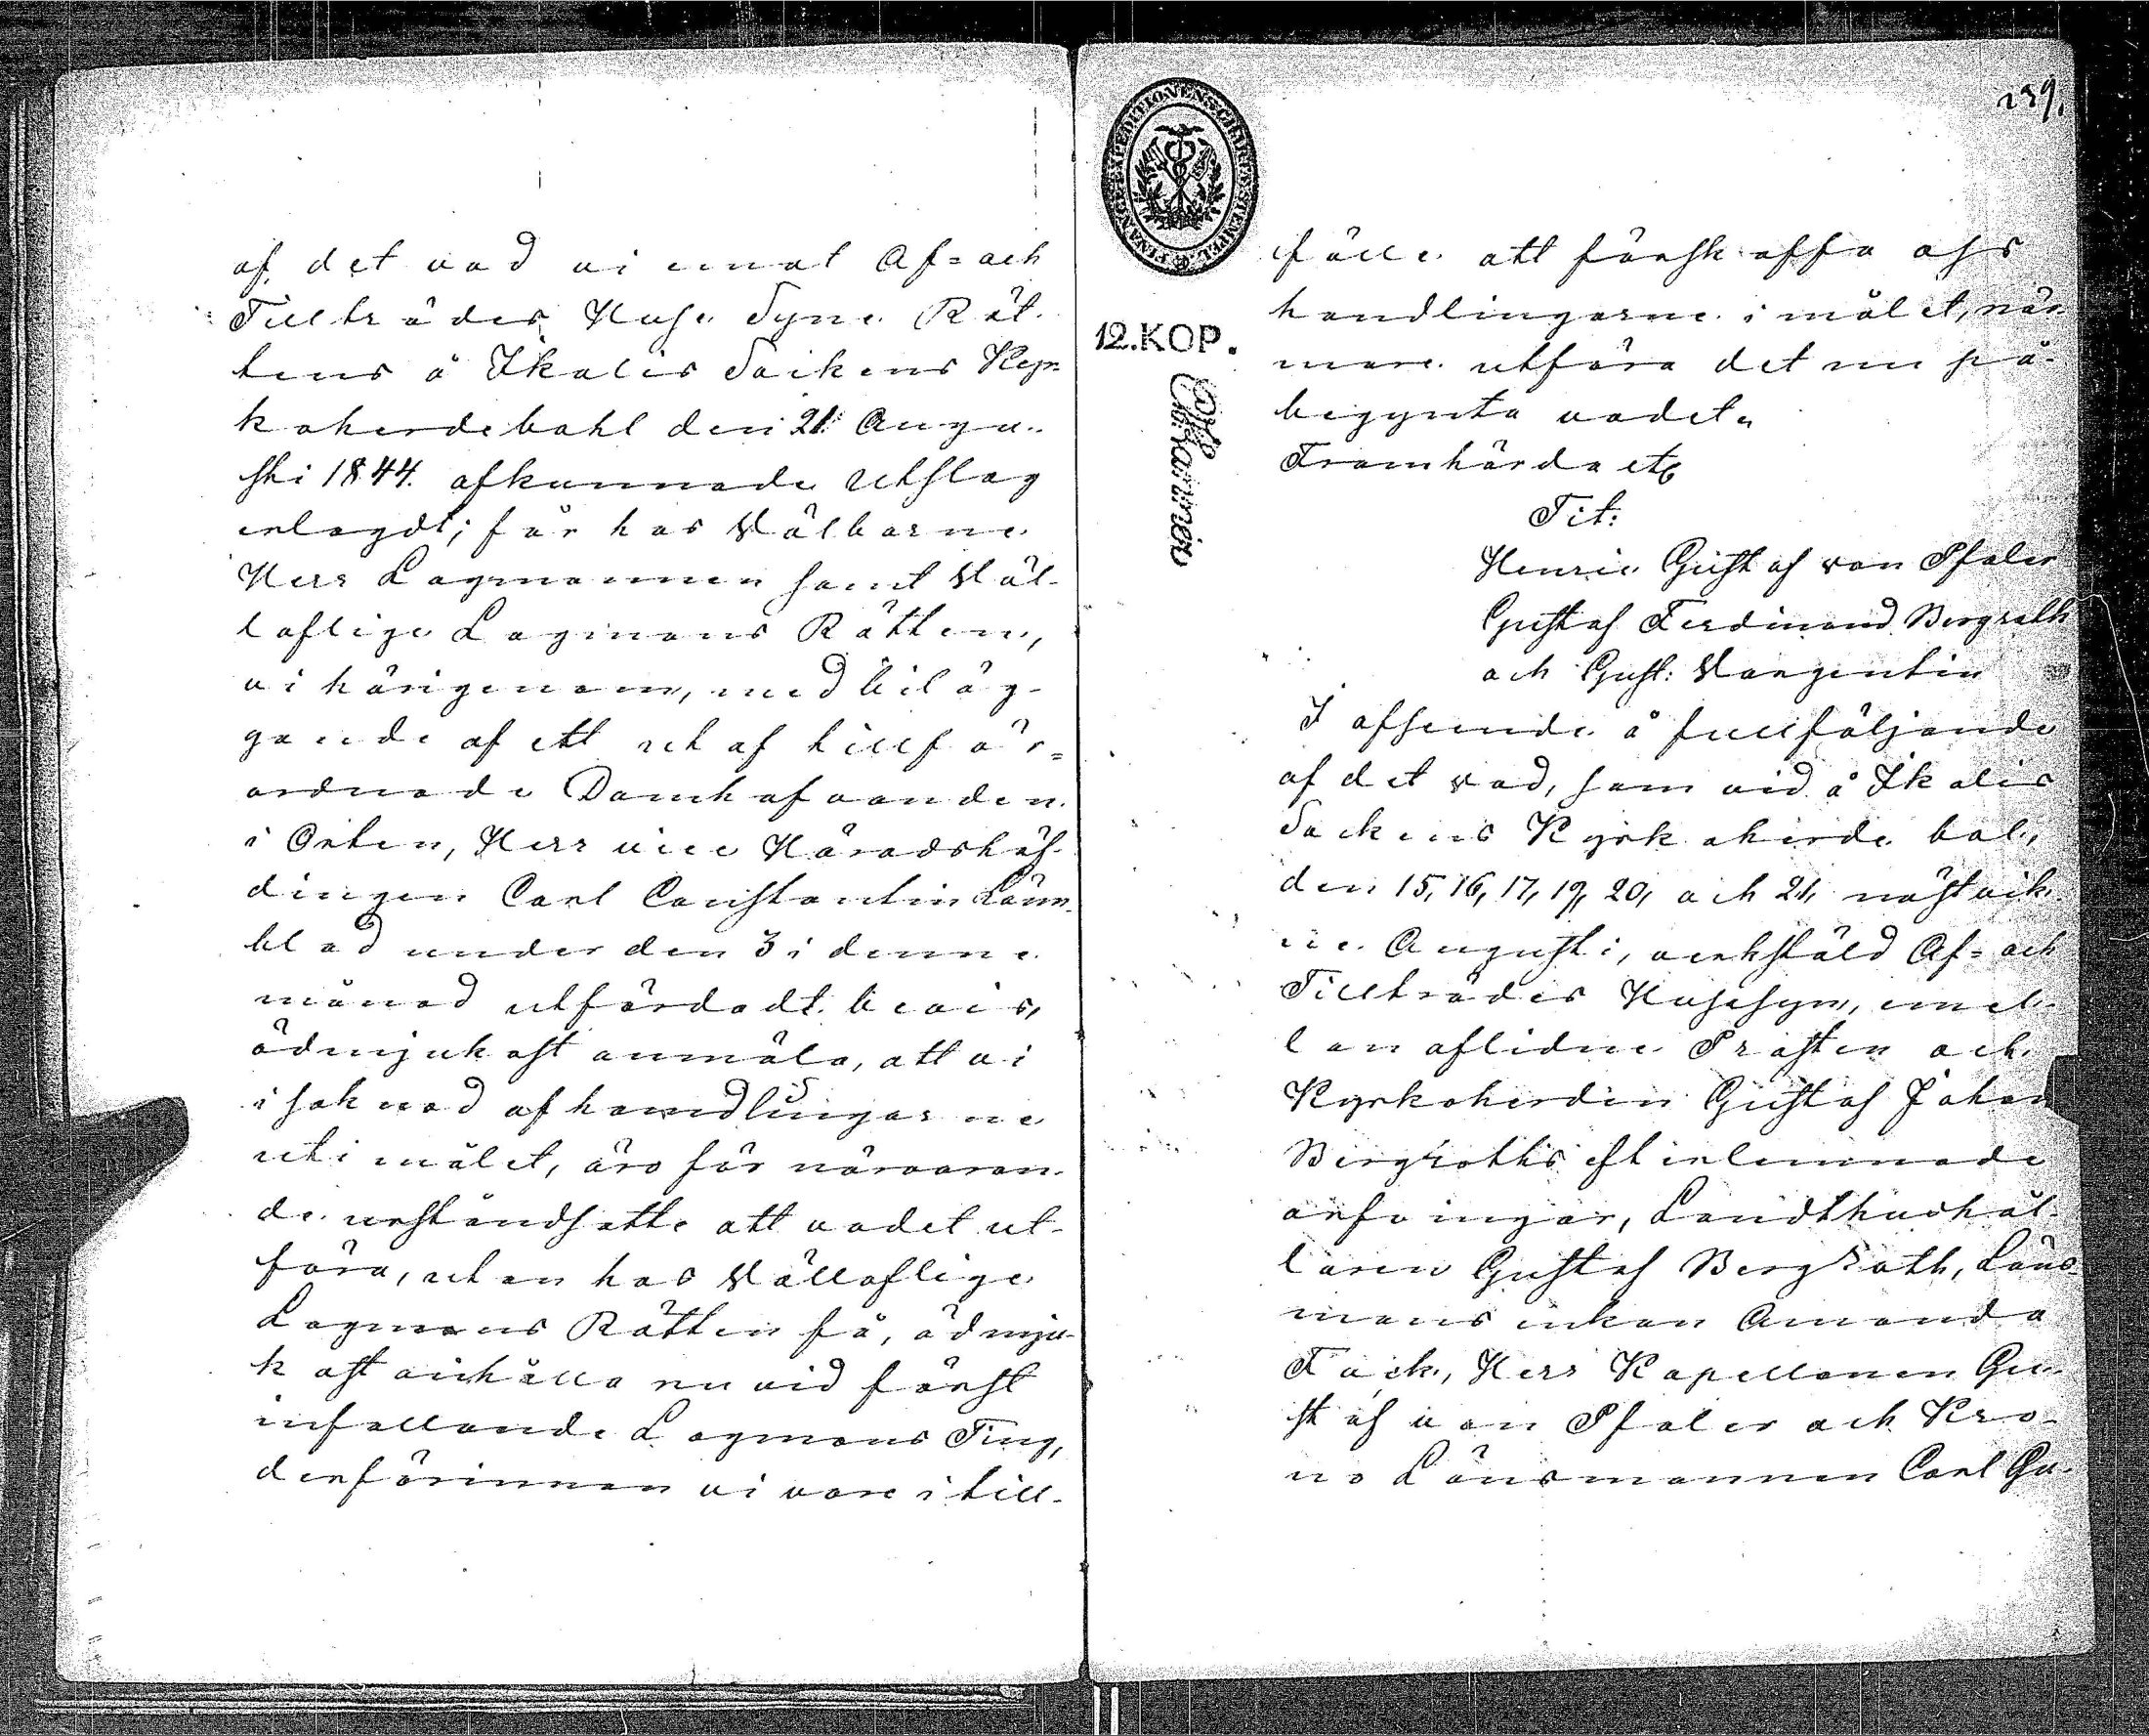 af det vad vi emot Af= och
Tillträdes Huse Syne Rät-
tens å Ikalis Sockens Kyr-
koherdebohl den 21 Augu-
sti 1844. afkunnade Utslag
erlagdt; får hos Välborne
Herr Lagmannen samt Väl-
loflige Lagmans Rätten,
vi härigenom, med biläg-
gande af ett utaf tillför-
ordnade Domhafvanden
i Orten, Herr vice Häradshöf-
dingen Carl Constantin Lönn-
blad under den 3 i denne
månad utfärdadt bevis,
ödmjukast anmäla, att vi
i saknad af handlingarne
uti målet, äro för närvaran-
de urståndsatte att vadet ut-
föra, utan hos Välloflige
Lagmans Rätten få, ödmju-
kast anhålla nu vid först
infallande Lagmans Ting,
derförinnan vi vore i till-
239.
FINANCE-EXPEDITIONENS CHARTÆ STEMPEL
12. KOP.
fälle att förskaffa ofss
handlingarne i målet, när-
mare utföra det nu på-
begynta vadet.
Framhärda etc
Tit:
Henric Gustaf von Pfaler
Gustaf Ferdinand Bergroth
och Gust: Wargentin
I afseende å fullföljande
af det vad, som vid å Ikalis
Sockens Kyrkoherde bol,
den 15, 16, 17, 19, 20, och 21, nästvik-
ne Augusti, verkstäld Af= och
Tillträdes Husesyn, emel-
lan aflidne Prosten och
Kyrkoherden Gustaf Johan
Bergroths efterlemnade
arfvingar, Landthushål-
laren Gustaf Bergroth, Läns-
mans enkan Amanda
Fack, Herr Kapellanen Gu-
staf von Pfaler och Kro-
no Länsmannen Carl Gu-